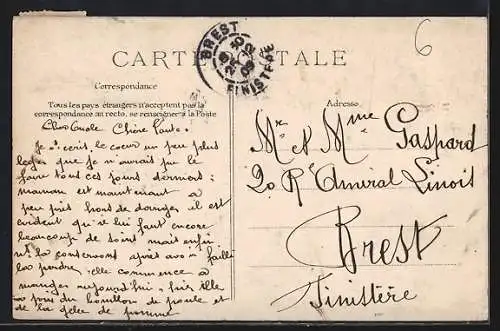 BREST
FINISTERE
6
CARTE POSTALE
Correspondance
Tous les pays étrangers n'acceptent pas la
correspondance au recto, se renseigner à la Poste
Cher Oncle Chère Tante.
Je écris le cœur un peu plus
léger que je n'aurais pu le
faire tous ces jours derniers;
maman est maintenant à
peu près hors de danger il est
évident qu'il lui faut encore
beaucoup de soins mais enfin
nous la conservons après avoir failli
la perdre, elle commence à
manger aujourd'hui, hier elle
a pris du bouillon de poule et
de la gelée de pomme
Adresse
Mr et Mme Gaspard
20 Re Amiral Linois
Brest
Finistère